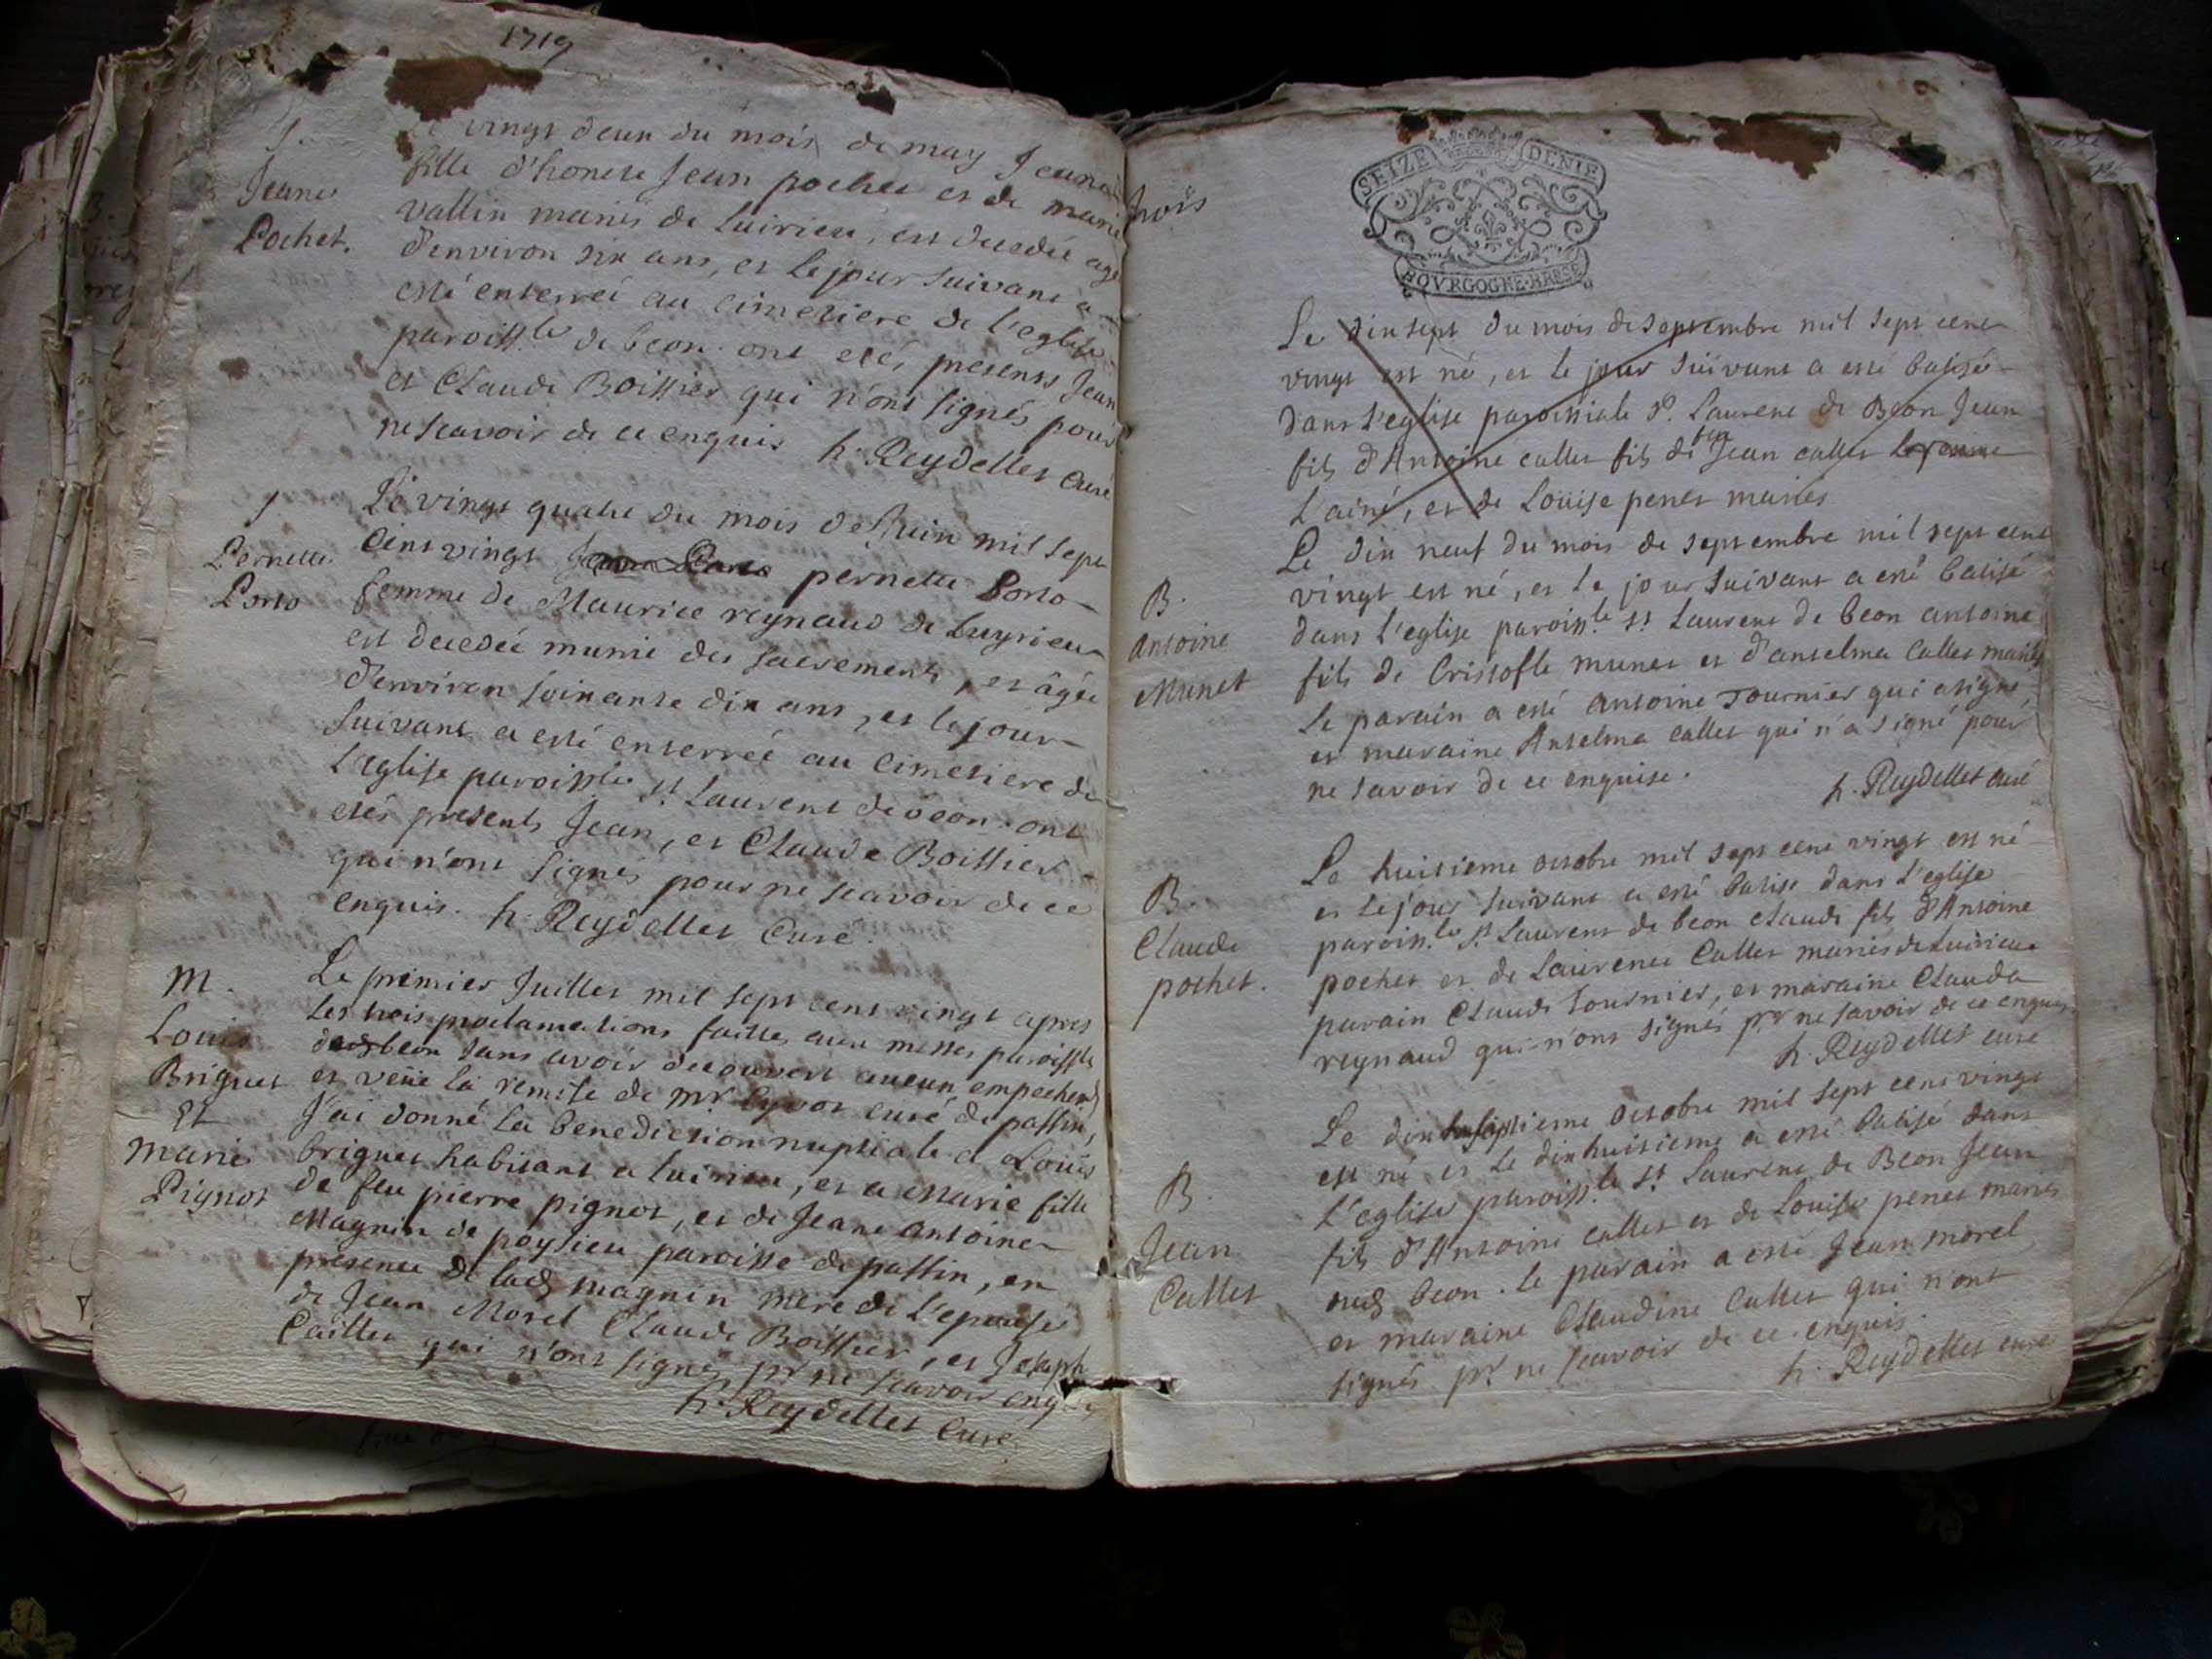 1719
S.
Jeane
Pochet.
Le vingt deux du mois de may Jeane
fille d'honeste Jean pochet et de marie
vallin mariés de Luirieu, est decedée agé
d'environ six ans, et le jour suivant a
esté enterreé au cimetiere de l'eglise
paroiss.le de beon. ont etés presents Jean
et Claude Boissier qui n'ont signés pour
ne scavoir de ce enquis h. Reydellet curé
S
Pernette
Porto
Le vingt quatre du mois de Juin mil sept
cent vingt pernette Porto
femme de Maurice reynaud de Luyrieu
est decedeé munie des sacrements, et âgée
d'environ soixante dix ans, et le jour
suivant a esté enterreé au cimetiere de
l'eglise paroissle St Laurent de beon. ont
etés presents Jean, et Claude Boissier
qui n'ont signés pour ne scavoir de ce
enquis. h. Reydellet Curé.
M.
Louis
Briguet
Et
Marie
Pignot
Le premier Juillet mil sept cent vingt apres
les trois proclamations faittes aux messes paroissles
beon sans avoir decouvert aucun empechemt
et veüe la remise de mr curé de passin,
J'ai donné la benediction nuptiale a Loüis
briguet habitant a luirieu, et a Marie fille
de feu pierre pignot, et de Jeane antoine
Magnin de poysieu paroisse de passin, en
presence de lad. magnin mere de l'epouse
de Jean Morel Claude Boissier, et Joseph
Caillet qui n'ont signé pr ne scavoir enquis
h. Reydellet Curé.
trois
SEIZE DENIE
BOVRGOGNE·BRESSE
Le dix sept du mois de septembre mil sept cent
vingt est né, et le jour suivant a esté batisé
dans l'eglise paroissiale St. Laurent de Beon Jean
fils d'Antoine callet fils de feu Jean callet le jeune
L'ainé, et de Louise penet mariés
B.
Antoine
Munet
Le dix neuf du mois de septembre mil sept cent
vingt est né, et le jour suivant a esté batisé
dans l'eglise paroiss.le St Laurent de beon antoine
fils de Cristofle munet et d'anselma Callet mariés
le parain a esté antoine Tournier qui a signé
et maraine Anselma callet qui n'a signé pour
ne savoir de ce enquise.
h. Reydellet curé
B.
Claude
pochet.
Le huitieme octobre mil sept cent vingt est né
et le jour suivant a esté batisé dans l'eglise
paroiss.le St Laurent de beon claude fils d'Antoine
pochet et de Laurence Callet mariés de Luirieu
parain Claude Tournier, et maraine Clauda
reynaud qui n'ont signés pr ne savoir de ce enquis
h. Reydellet curé
B.
Jean
Callet
Le dix septieme octobre mil sept cent vingt
est né et le dixhuitieme a esté batisé dans
l'eglise paroiss.le St Laurent de Beon Jean
fils d'Antoine callet et de Louise penet mariés
beon. le parain a esté Jean morel
et maraine Claudine Callet qui n'ont
signés pr ne scavoir de ce enquis.
h. Reydellet curé